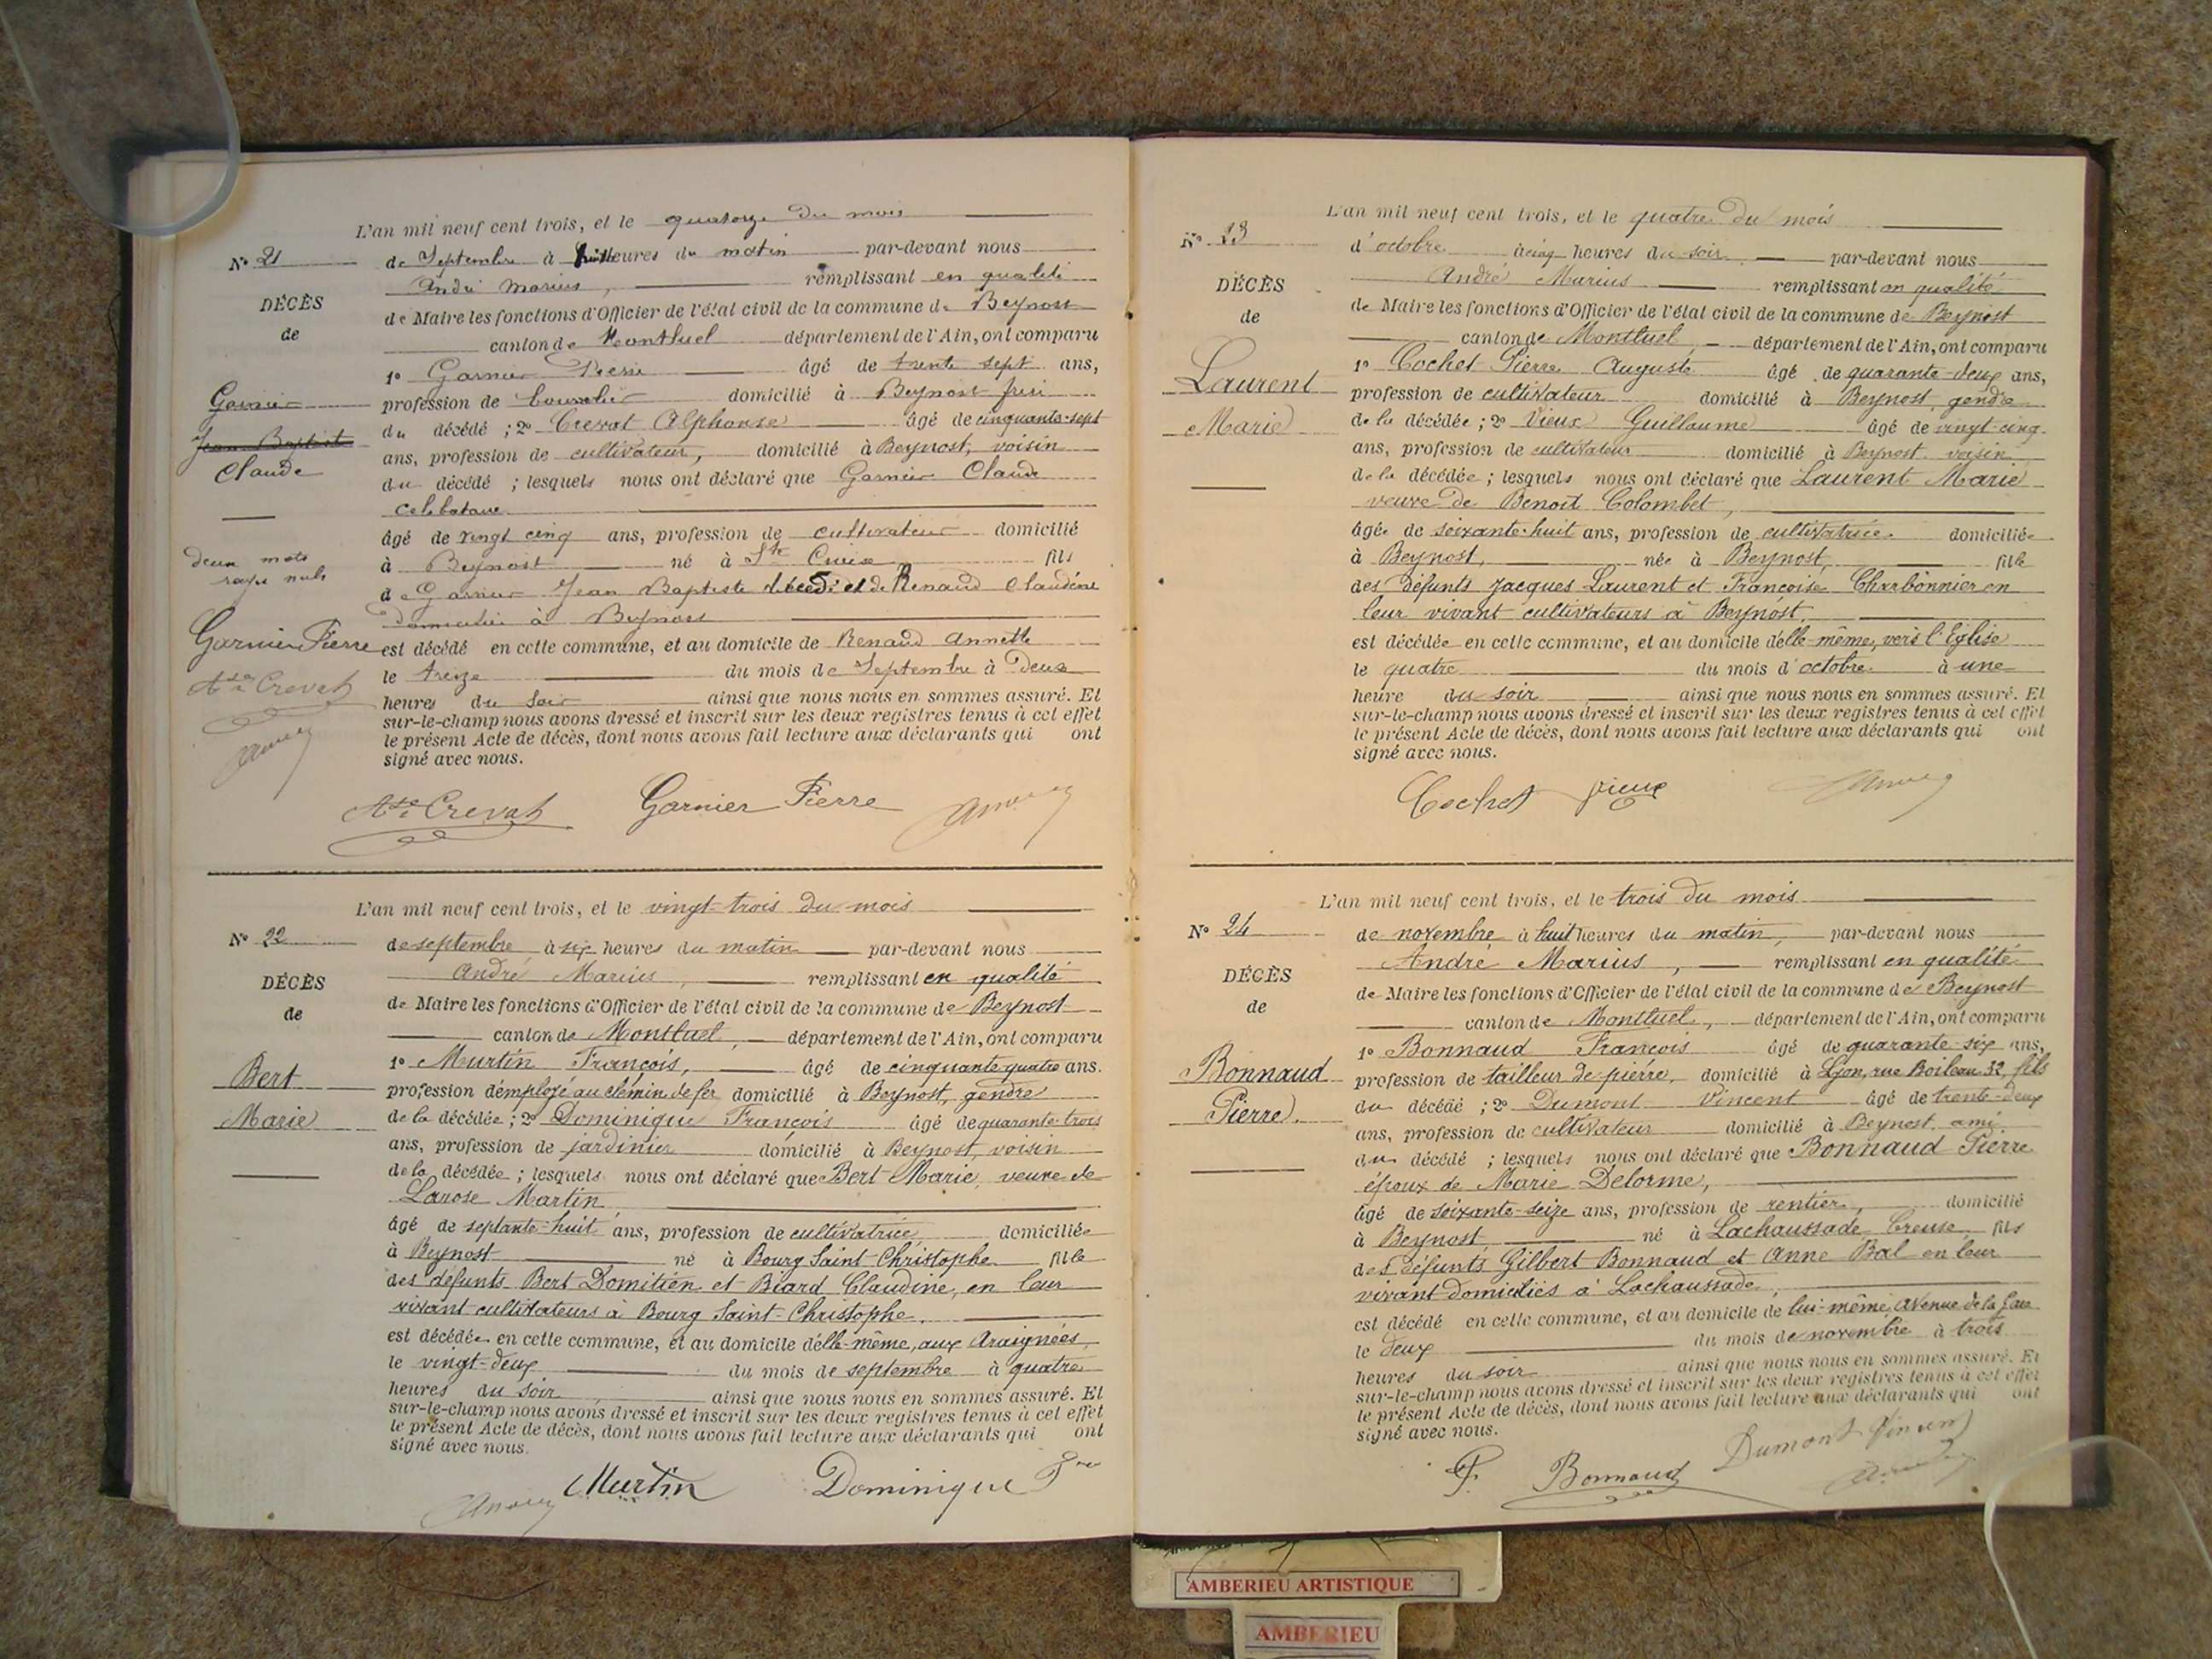 L'an mil neuf cent trois, et le quatorze du mois
N° 21
de Septembre à huit heures du matin par-devant nous
André Marius, remplissant en qualité
DÉCÈS
de Maire les fonctions d'Officier de l'état civil de la commune de Beynost
de
canton de Montluel département de l'Ain, ont comparu
1° Garnier Pierre âgé de trente sept ans,
Garnier
profession de bourrelier domicilié à Beynost frère
Jean Baptiste
du décédé ; 2° Crevat Alphonse âgé de cinquante-sept
Claude
ans, profession de cultivateur, domicilié à Beynost, voisin
du décédé ; lesquels nous ont déclaré que Garnier Claude
celibataire
âgé de vingt cinq ans, profession de cultivateur domicilié
deux mots
rayés nuls
à Beynost né à Ste Croix fils
de Garnier Jean Baptiste décédé et de Renaud Claudine
domiciliée à Beynost
Garnier Pierre
est décédé en cette commune, et au domicile de Renaud Annette
Ase Crevat
le treize du mois de Septembre à deux
heures du soir ainsi que nous nous en sommes assuré. Et
sur-le-champ nous avons dressé et inscrit sur les deux registres tenus à cet effet
le présent Acte de décès, dont nous avons fait lecture aux déclarants qui ont
signé avec nous.
Ase Crevat Garnier Pierre
L'an mil neuf cent trois, et le vingt-trois du mois
N° 22
de septembre à six heures du matin par-devant nous
André Marius, remplissant en qualité
DÉCÈS
de Maire les fonctions d'Officier de l'état civil de la commune de Beynost
de
canton de Montluel, département de l'Ain, ont comparu
1° Murtin François, âgé de cinquante quatre ans.
Bert
profession d'employé au chemin de fer domicilié à Beynost, gendre
Marie
de la décédée ; 2° Dominique François âgé de quarante-trois
ans, profession de jardinier domicilié à Beynost, voisin
de la décédée ; lesquels nous ont déclaré que Bert Marie, veuve de
Larose Martin,
âgé de septante-huit ans, profession de cultivatrice domiciliée
à Beynost né à Bourg Saint-Christophe fille
des défunts Bert Domitien et Biard Claudine, en leur
vivant cultivateurs à Bourg Saint-Christophe.
est décédée en cette commune, et au domicile d'elle-même, aux Araignées,
le vingt-deux du mois de septembre à quatre
heures du soir ainsi que nous nous en sommes assuré. Et
sur-le-champ nous avons dressé et inscrit sur les deux registres tenus à cet effet
le présent Acte de décès, dont nous avons fait lecture aux déclarants qui ont
signé avec nous.
Murtin Dominique
L'an mil neuf cent trois, et le quatre du mois
N° 23
d'octobre à cinq heures du soir par-devant nous
André Marius remplissant en qualité
DÉCÈS
de Maire les fonctions d'Officier de l'état civil de la commune de Beynost
de
canton de Montluel département de l'Ain, ont comparu
1° Cochet Pierre Auguste âgé de quarante-deux ans,
Laurent
profession de cultivateur domicilié à Beynost, gendre
Marie
de la décédée ; 2° Vieux Guillaume âgé de vingt-cinq
ans, profession de cultivateur domicilié à Beynost voisin
de la décédée ; lesquels nous ont déclaré que Laurent Marie
veuve de Benoît Colombet,
âgée de soixante-huit ans, profession de cultivatrice domiciliée
à Beynost, née à Beynost, fille
des défunts Jacques Laurent et Françoise Charbonnier en
leur vivant cultivateurs à Beynost,
est décédée en cette commune, et au domicile d'elle-même, vers l'Eglise
le quatre du mois d'octobre à une
heure du soir ainsi que nous nous en sommes assuré. Et
sur-le-champ nous avons dressé et inscrit sur les deux registres tenus à cet effet
le présent Acte de décès, dont nous avons fait lecture aux déclarants qui ont
signé avec nous.
Cochet Vieux
L'an mil neuf cent trois, et le trois du mois
N° 24
de novembre à huit heures du matin, par-devant nous
André Marius, remplissant en qualité
DÉCÈS
de Maire les fonctions d'Officier de l'état civil de la commune de Beynost
de
canton de Montluel, département de l'Ain, ont comparu
1° Bonnaud François âgé de quarante-six ans,
Bonnaud
profession de tailleur de pierre, domicilié à Lyon, rue Boileau 32, fils
Pierre.
du décédé ; 2° Dumont Vincent âgé de trente-deux
ans, profession de cultivateur domicilié à Beynost, ami
du décédé ; lesquels nous ont déclaré que Bonnaud Pierre
époux de Marie Delorme,
âgé de soixante-seize ans, profession de rentier, domicilié
à Beynost, né à Lachaussade Creuse fils
des défunts Gilbert Bonnaud et Anne Bal en leur
vivant domiciliés à Lachaussade,
est décédé en cette commune, et au domicile de lui-même, avenue de la Gare
le deux du mois de novembre à trois
heures du soir ainsi que nous nous en sommes assuré. Et
sur-le-champ nous avons dressé et inscrit sur les deux registres tenus à cet effet
le présent Acte de décès, dont nous avons fait lecture aux déclarants qui ont
signé avec nous.
F. Bonnaud Dumont Vincent
AMBERIEU ARTISTIQUE
AMBERIEU